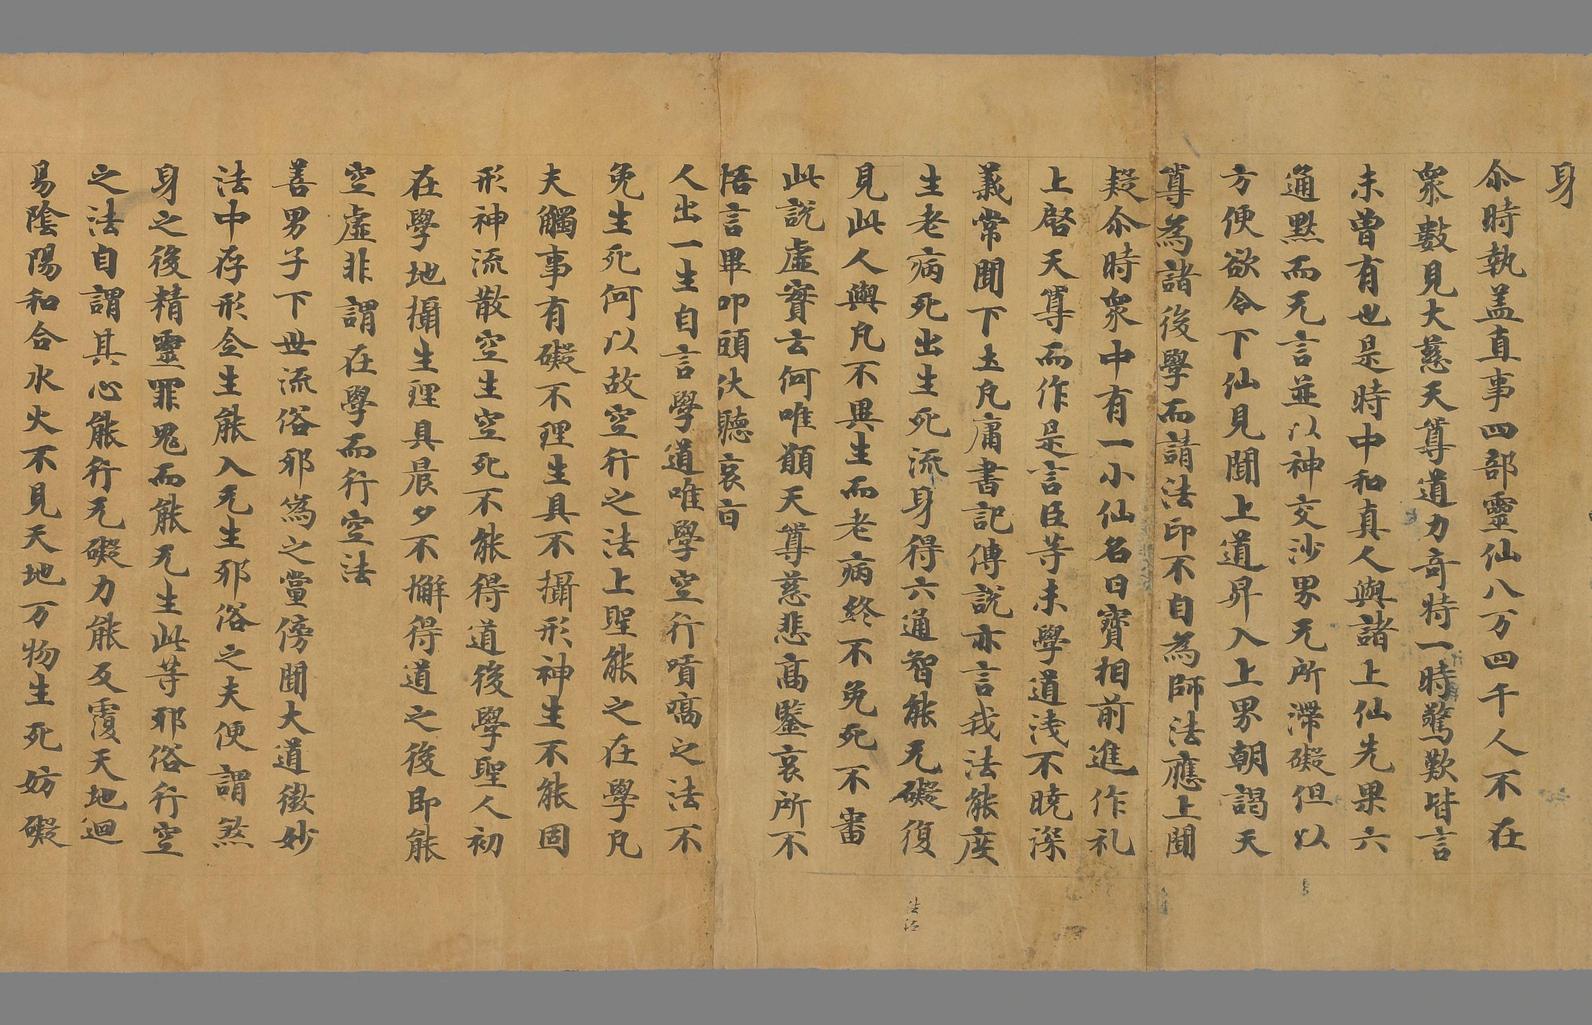 身
尒時執盖直事四部靈仙八万四千人不在
衆數見大慈天尊道力奇特一時驚歎皆言
未曾有也是時中和真人與諸上仙先果六
通黙而无言並以神交沙界无所滯礙但以
方便欲令下仙見聞上道昇入上界朝謁天
尊為諸後學而請法印不自為師法應上聞
疑尒時衆中有一小仙名曰寶相前進作礼
上啓天尊而作是言臣等未學道淺不曉深
義常聞下土凡庸書記傳說亦言我法能度
生老病死出生死流身得六通智能无礙復
見此人與凡不異生而老病終不免死不審
此説虛實云何唯願天尊慈悲高鑒哀所不
悟言畢叩頭伏聽哀旨
人出一生自言學道唯學空行嘖嗃之法不
免生死何以故空行之法上聖能之在學凡
夫觸事有礙不理生具不攝形神生不能固
形神流散空生空死不能得道後學聖人初
在學地攝生理具晨夕不懈得道之後即能
空虛非謂在學而行空法
善男子下世流俗邪偽之黨傍聞大道徴妙
法中存形念生能入无生邪俗之夫便謂煞
身之後精靈罪鬼而能无生此等邪俗行空
之法自謂其心能行无礙力能反覆天地迴
易陰陽和合水火不見天地万物生死妨礙